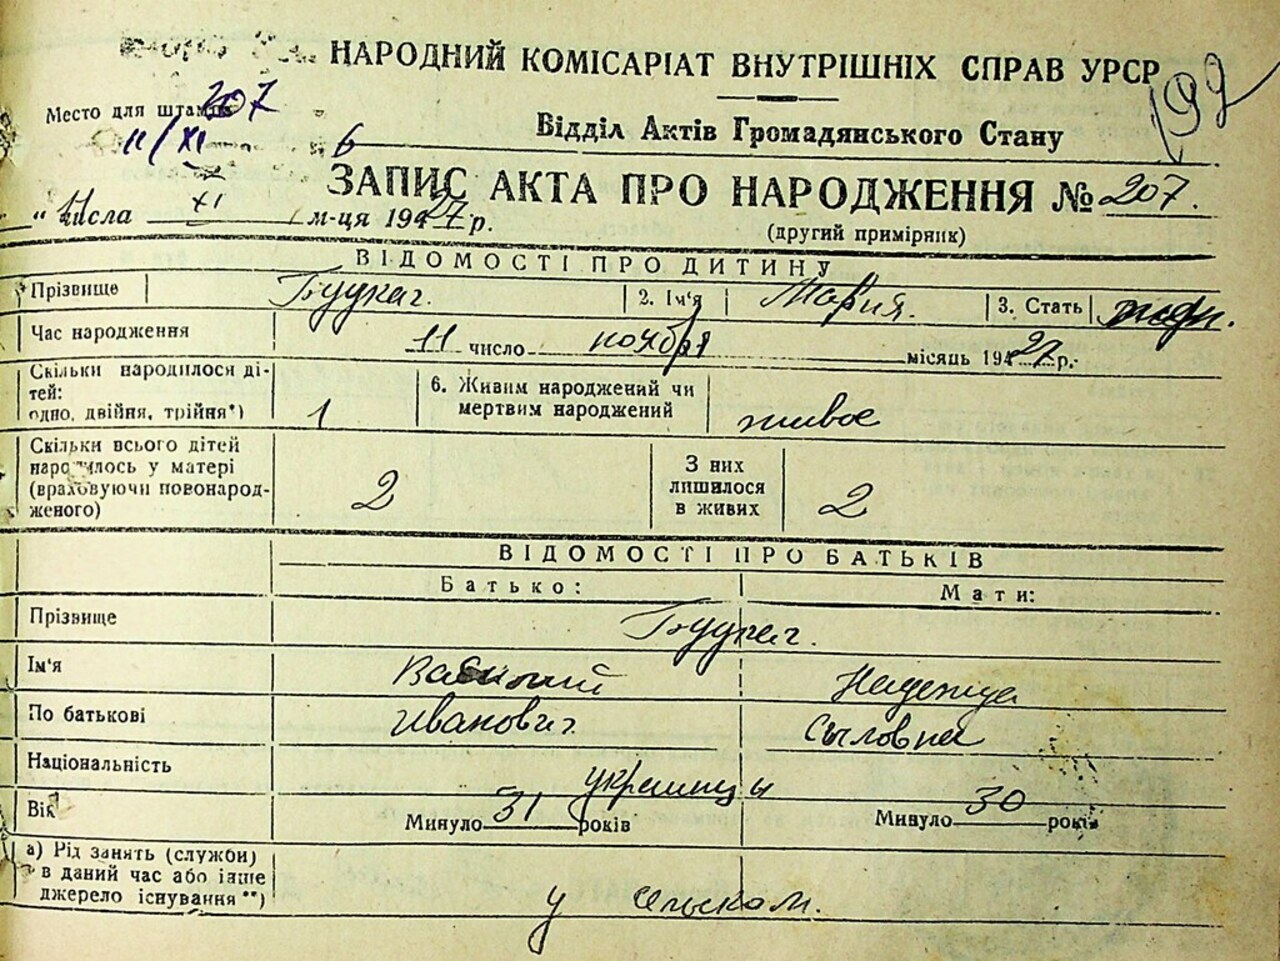 НАРОДНИЙ КОМІСАРІАТ ВНУТРІШНІХ СПРАВ УРСР
192
Место для штампа 207
11/XI 6
Відділ Актів Громадянського Стану
ЗАПИС АКТА ПРО НАРОДЖЕННЯ № 207.
„ 11 числа XI м-ця 19427 р.
(другий примірник)
ВІДОМОСТІ ПРО ДИТИНУ
Прізвище 2. Ім'я Мария. 3. Стать
Час народження 11 число ноября місяць 19427 р.
Скільки народилося ді-
тей:
одно, двійня, трійня*) 1
6. Живим народжений чи
мертвим народжений живое
Скільки всього дітей
народилось у матері
(враховуючи повонарод-
женого) 2
З них
лишилося
в живих 2
ВІДОМОСТІ ПРО БАТЬКІВ
Батько: Мати:
Прізвище
Ім'я Василий Надежда
По батькові Иванович Сыловна
Національність украинцы
Вік Минуло 31 років Минуло 30 років
а) Рід занять (служби)
в даний час або інше
джерело існування **) у сельском.